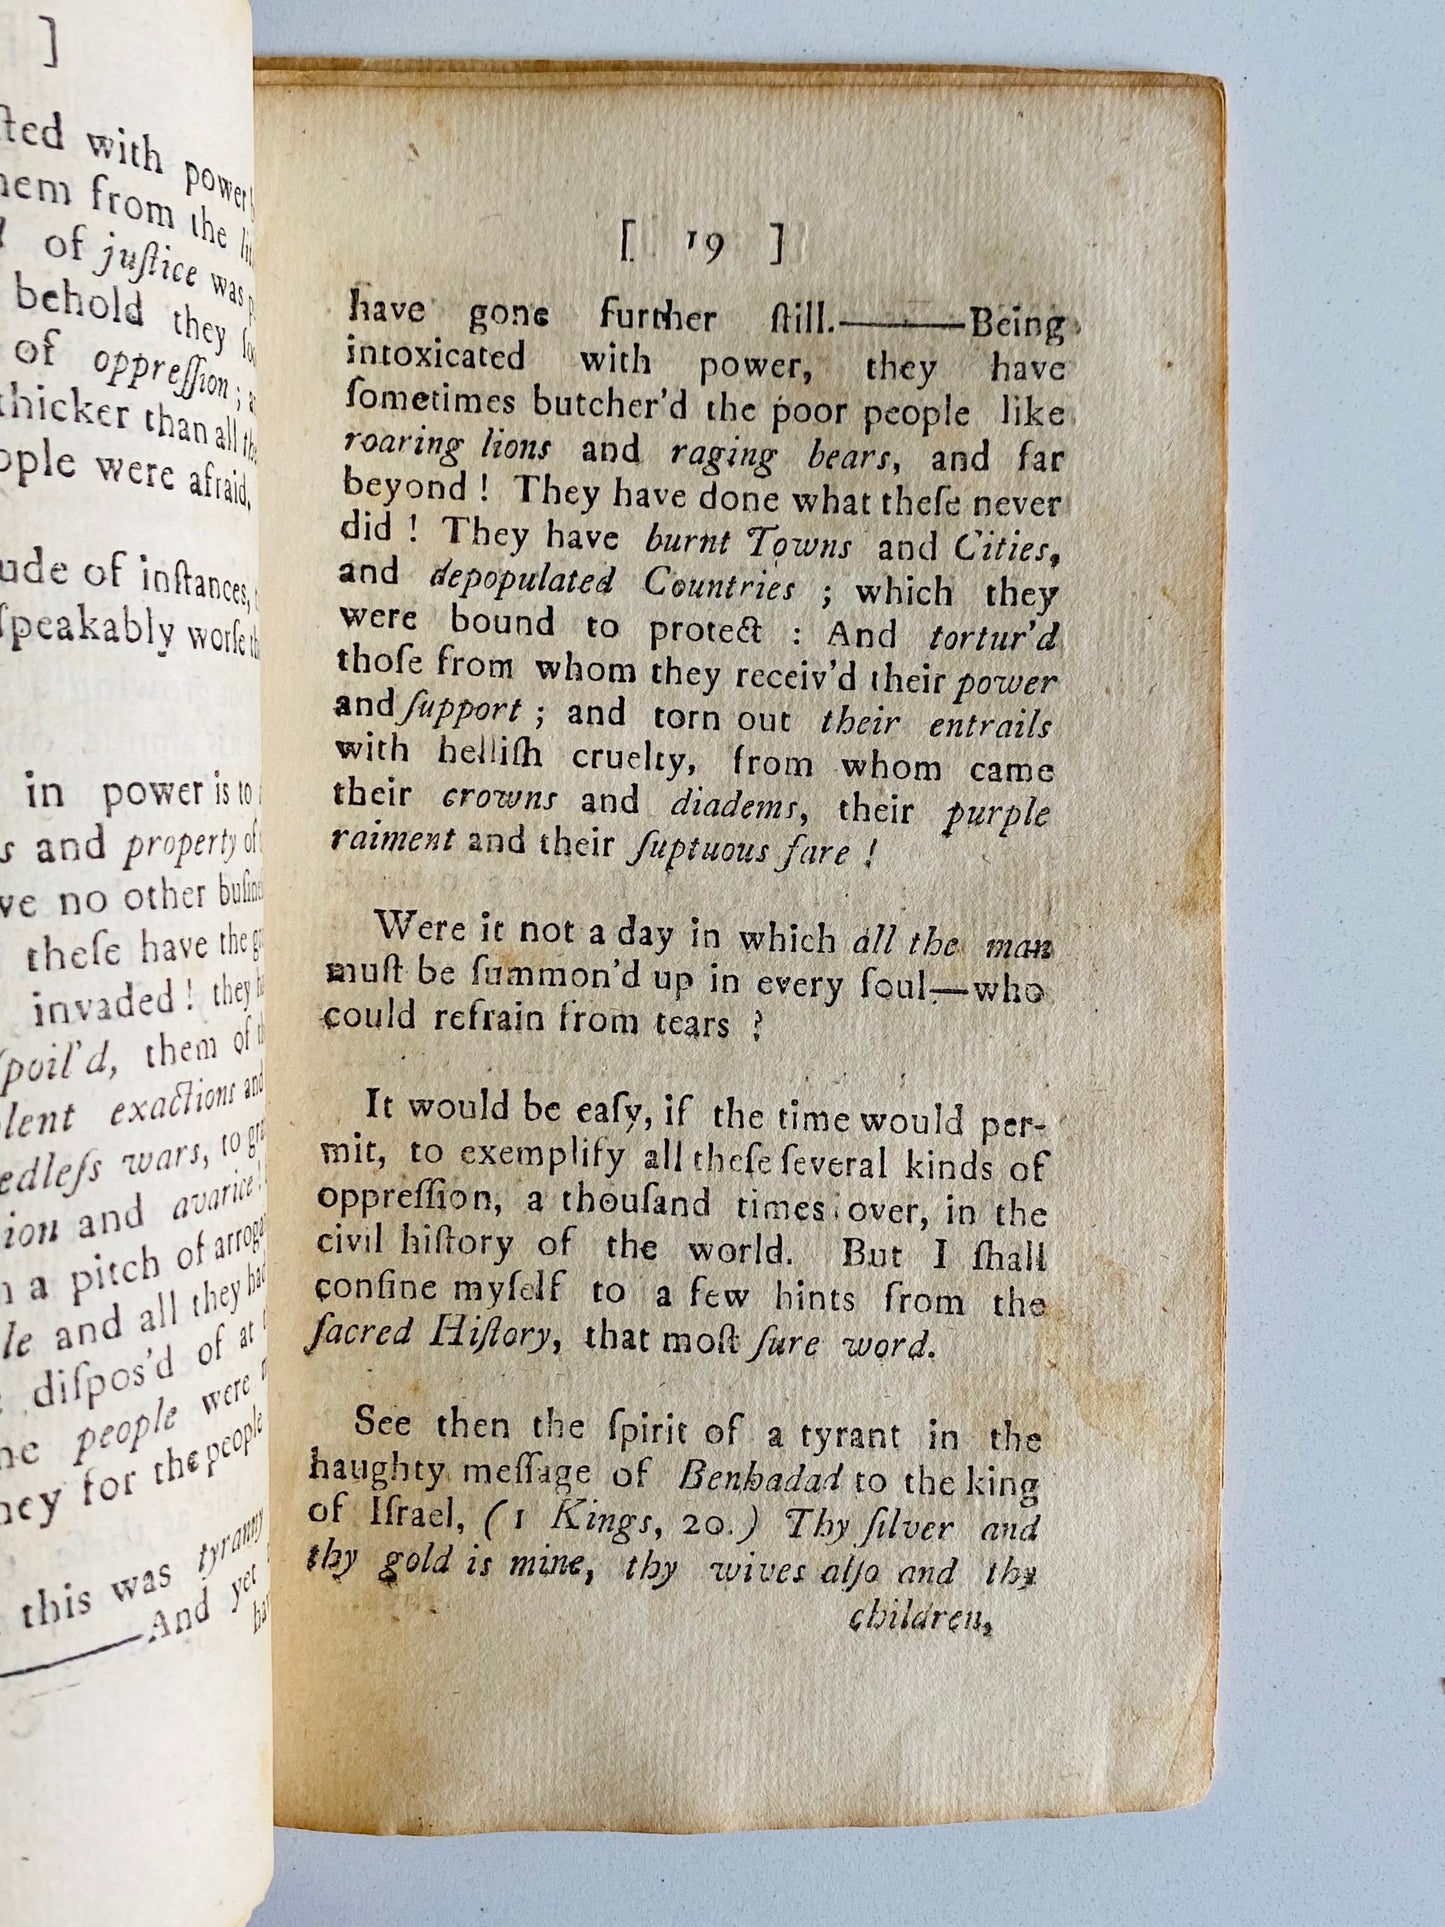 ]
with power
from the
of juſtice was
behold they
of oppreſſion;
thicker than all the
were afraid.
of inſtances,
worſe
in power is to
and property of
no other
theſe have the
invaded! they
ſpoil'd, them of
exactions and
wars, to
and avarice!
a pitch of
and all they had
diſpos'd of at
people were
for the people
this was tyranny
——And yet
[ 19 ]
have gone further ſtill.———Being
intoxicated with power, they have
ſometimes butcher'd the poor people like
roaring lions and raging bears, and far
beyond! They have done what theſe never
did! They have burnt Towns and Cities,
and depopulated Countries; which they
were bound to protect: And tortur'd
thoſe from whom they receiv'd their power
and ſupport; and torn out their entrails
with helliſh cruelty, from whom came
their crowns and diadems, their purple
raiment and their ſuptuous fare!
Were it not a day in which all the man
muſt be ſummon'd up in every ſoul—who
could refrain from tears?
It would be eaſy, if the time would per-
mit, to exemplify all theſe ſeveral kinds of
oppreſſion, a thouſand times over, in the
civil hiſtory of the world. But I ſhall
confine myſelf to a few hints from the
ſacred Hiſtory, that moſt ſure word.
See then the ſpirit of a tyrant in the
haughty meſſage of Benhadad to the king
of Iſrael, (1 Kings, 20.) Thy ſilver and
thy gold is mine, thy wives alſo and thy
children,